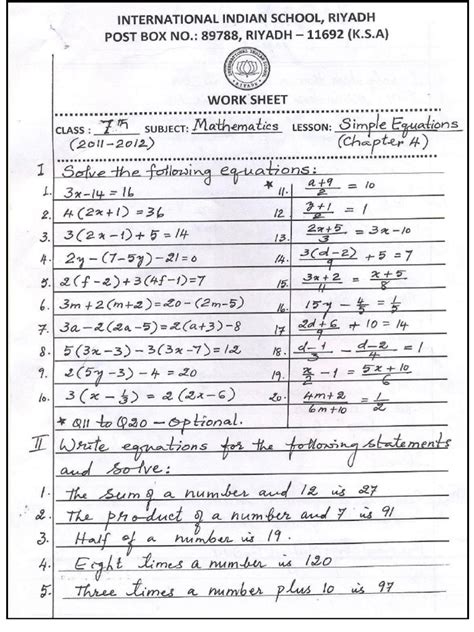 INTERNATIONAL INDIAN SCHOOL, RIYADH
POST BOX NO.: 89788, RIYADH – 11692 (K.S.A)
WORK SHEET
CLASS : 7th SUBJECT: Mathematics LESSON: Simple Equations
(2011-2012) (Chapter 4)
I Solve the following equations:
1. 3x-14 = 16
2. 4(2x+1) = 36
3. 3(2x-1)+5 = 14
4. 2y-(7-5y)-21=0
5. 2(f-2)+3(4f-1)=7
6. 3m+2(m+2)=20-(2m-5)
7. 3a-2(2a-5)=2(a+3)-8
8. 5(3x-3)-3(3x-7)=12
9. 2(5y-3)-4=20
10. 3(x-1/3) = 2(2x-6)
* 11. (a+9)/2 = 10
12. (y+1)/2 = 1
13. (2x+5)/3 = 3x-10
14. 3(d-2)/9 +5 = 7
15. (3x+2)/11 = (x+5)/8
16. 15y - 4/5 = 1/5
17. (2d+6)/9 + 10 = 14
18. (d-1)/3 - (d-2)/4 = 1
19. x/2 -1 = (5x+10)/6
20. (4m+2)/(6m+10) = 1/2
* Q11 to Q20 – optional.
II Write equations for the following statements
and solve:
1. The sum of a number and 12 is 27
2. The product of a number and 7 is 91
3. Half of a number is 19.
4. Eight times a number is 120
5. Three times a number plus 10 is 97